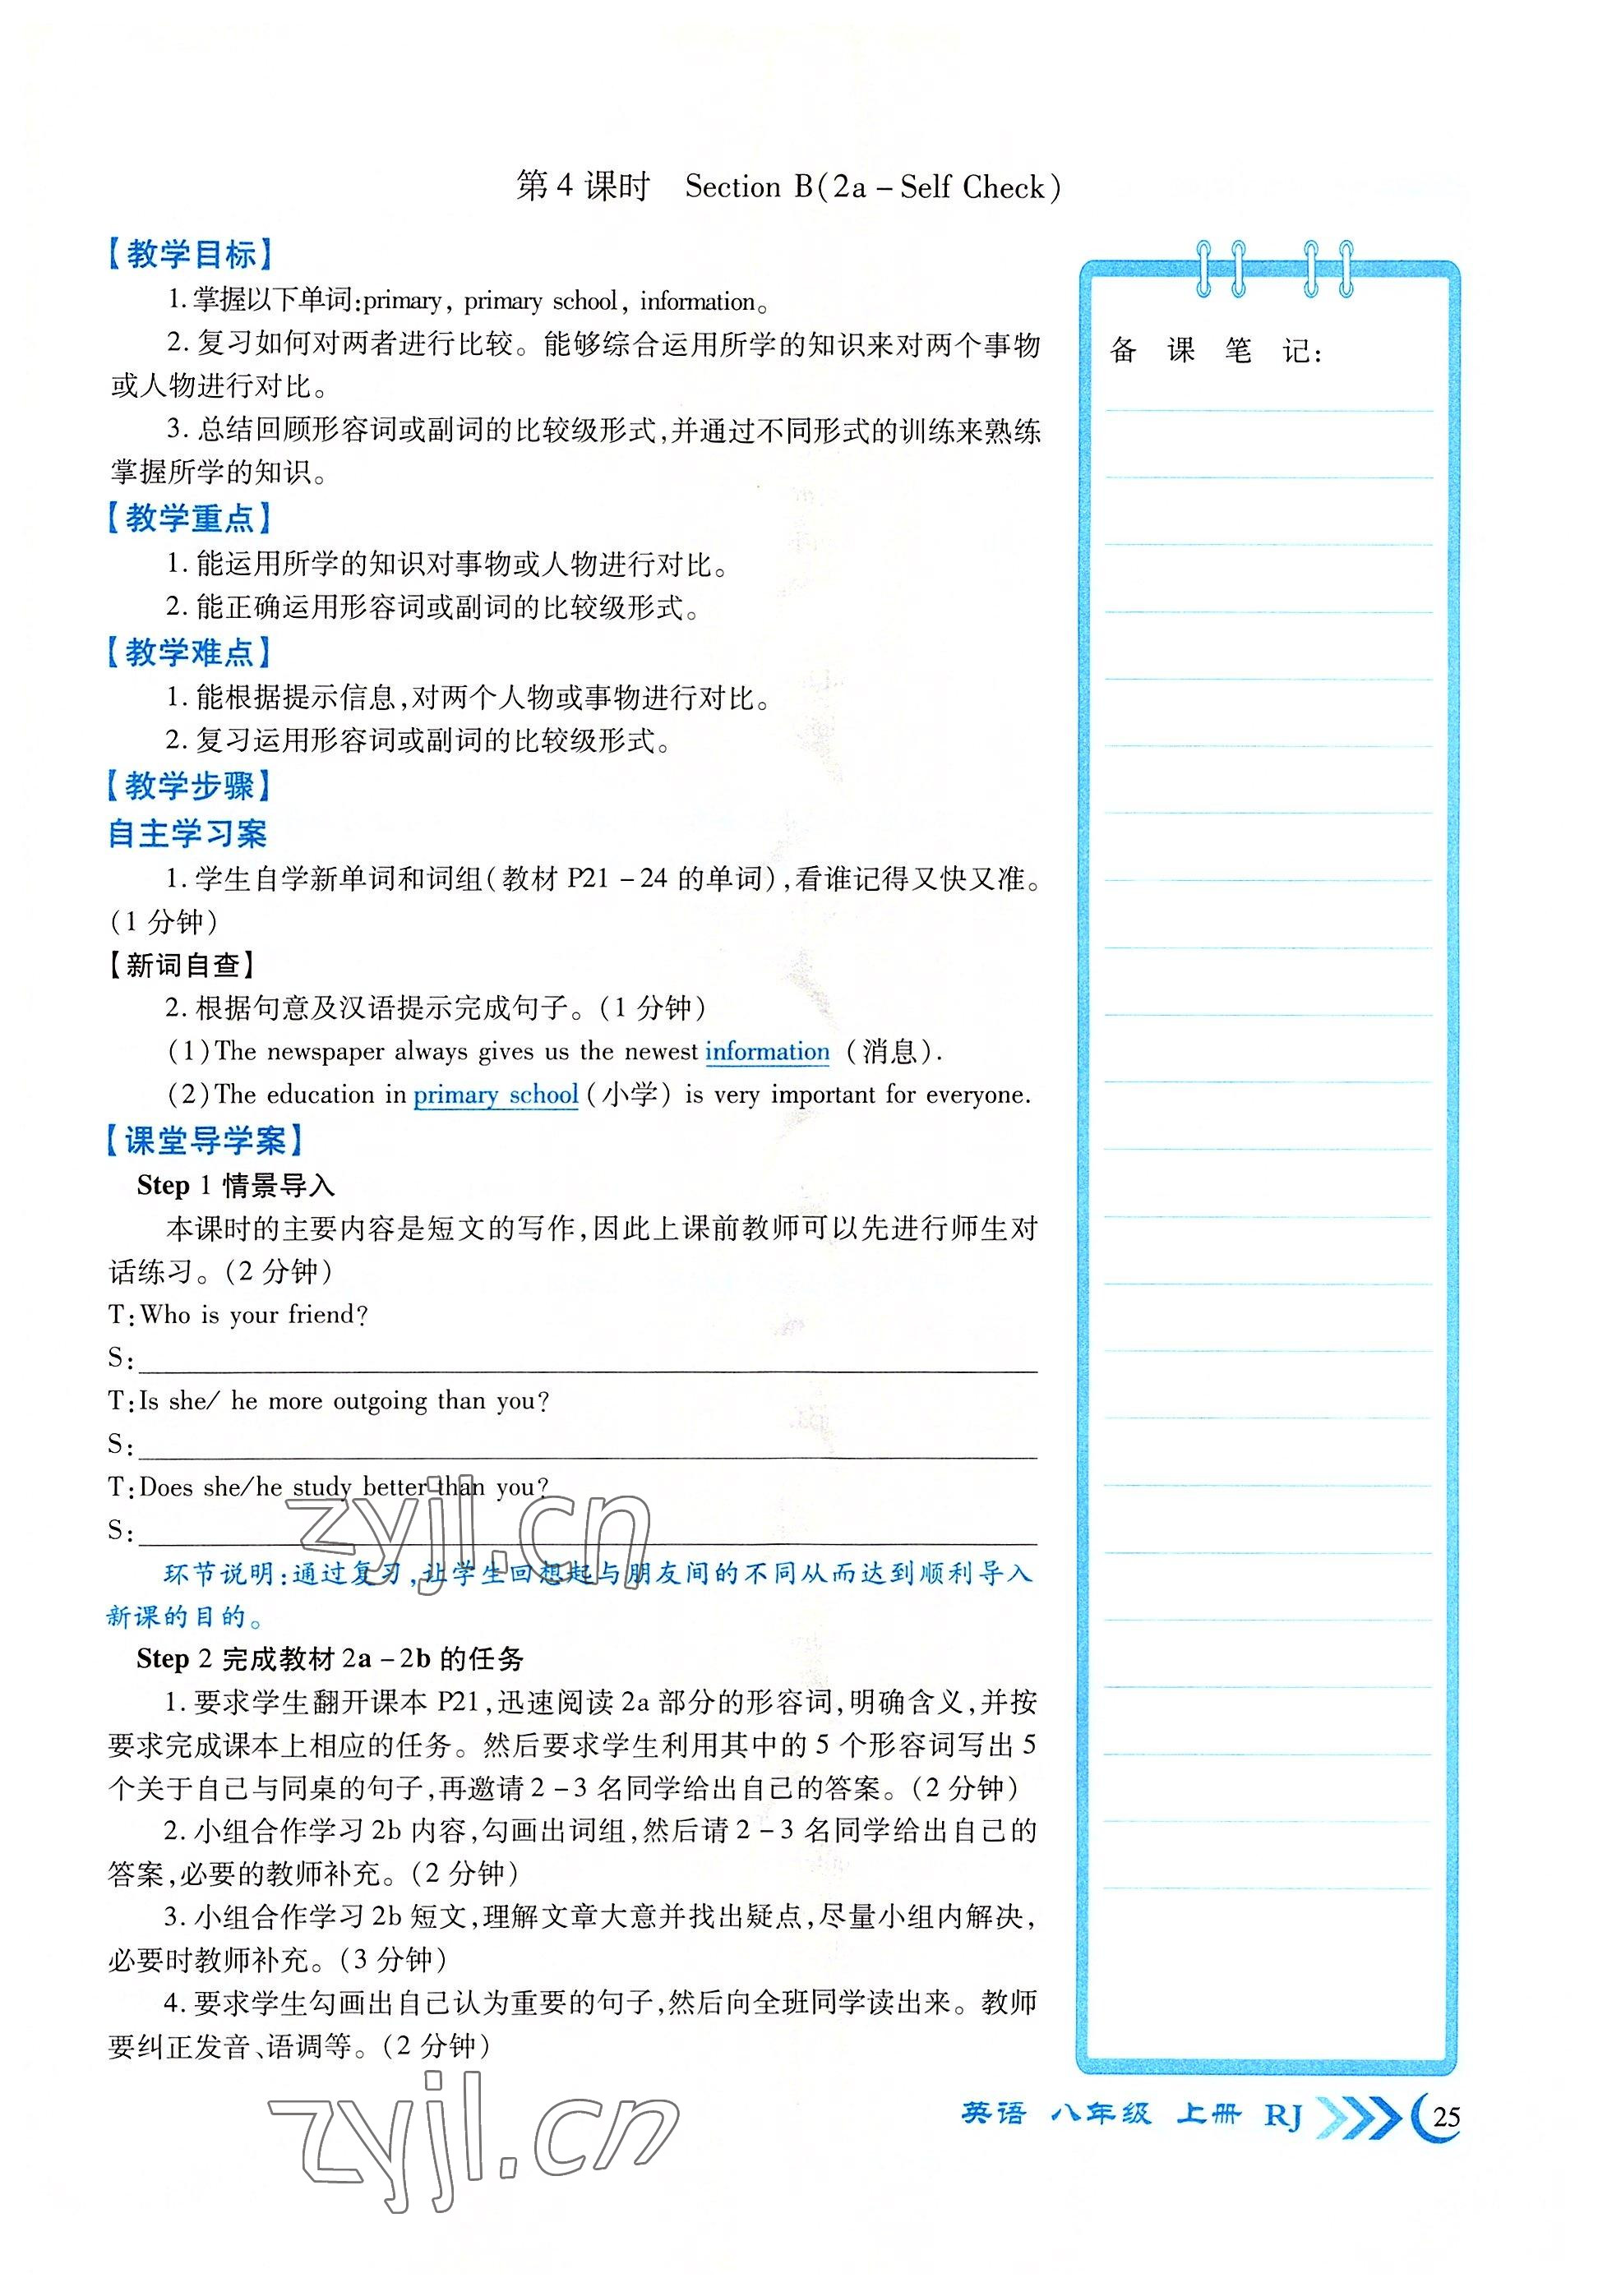 第 4 课时　Section B(2a – Self Check)
【教学目标】
1. 掌握以下单词:primary, primary school, information。
2. 复习如何对两者进行比较。能够综合运用所学的知识来对两个事物
或人物进行对比。
3. 总结回顾形容词或副词的比较级形式,并通过不同形式的训练来熟练
掌握所学的知识。
【教学重点】
1. 能运用所学的知识对事物或人物进行对比。
2. 能正确运用形容词或副词的比较级形式。
【教学难点】
1. 能根据提示信息,对两个人物或事物进行对比。
2. 复习运用形容词或副词的比较级形式。
【教学步骤】
自主学习案
1. 学生自学新单词和词组(教材 P21 – 24 的单词),看谁记得又快又准。
(1 分钟)
【新词自查】
2. 根据句意及汉语提示完成句子。(1 分钟)
(1)The newspaper always gives us the newest information (消息).
(2)The education in primary school (小学) is very important for everyone.
【课堂导学案】
Step 1 情景导入
本课时的主要内容是短文的写作,因此上课前教师可以先进行师生对
话练习。(2 分钟)
T:Who is your friend?
S:
T:Is she/ he more outgoing than you?
S:
T:Does she/he study better than you?
S:
环节说明:通过复习,让学生回想起与朋友间的不同从而达到顺利导入
新课的目的。
Step 2 完成教材 2a – 2b 的任务
1. 要求学生翻开课本 P21,迅速阅读 2a 部分的形容词,明确含义,并按
要求完成课本上相应的任务。然后要求学生利用其中的 5 个形容词写出 5
个关于自己与同桌的句子,再邀请 2 – 3 名同学给出自己的答案。(2 分钟)
2. 小组合作学习 2b 内容,勾画出词组,然后请 2 – 3 名同学给出自己的
答案,必要的教师补充。(2 分钟)
3. 小组合作学习 2b 短文,理解文章大意并找出疑点,尽量小组内解决,
必要时教师补充。(3 分钟)
4. 要求学生勾画出自己认为重要的句子,然后向全班同学读出来。教师
要纠正发音、语调等。(2 分钟)
备 课 笔 记:
zyjl.cn
zyjl.cn
英语 八年级 上册 RJ 25